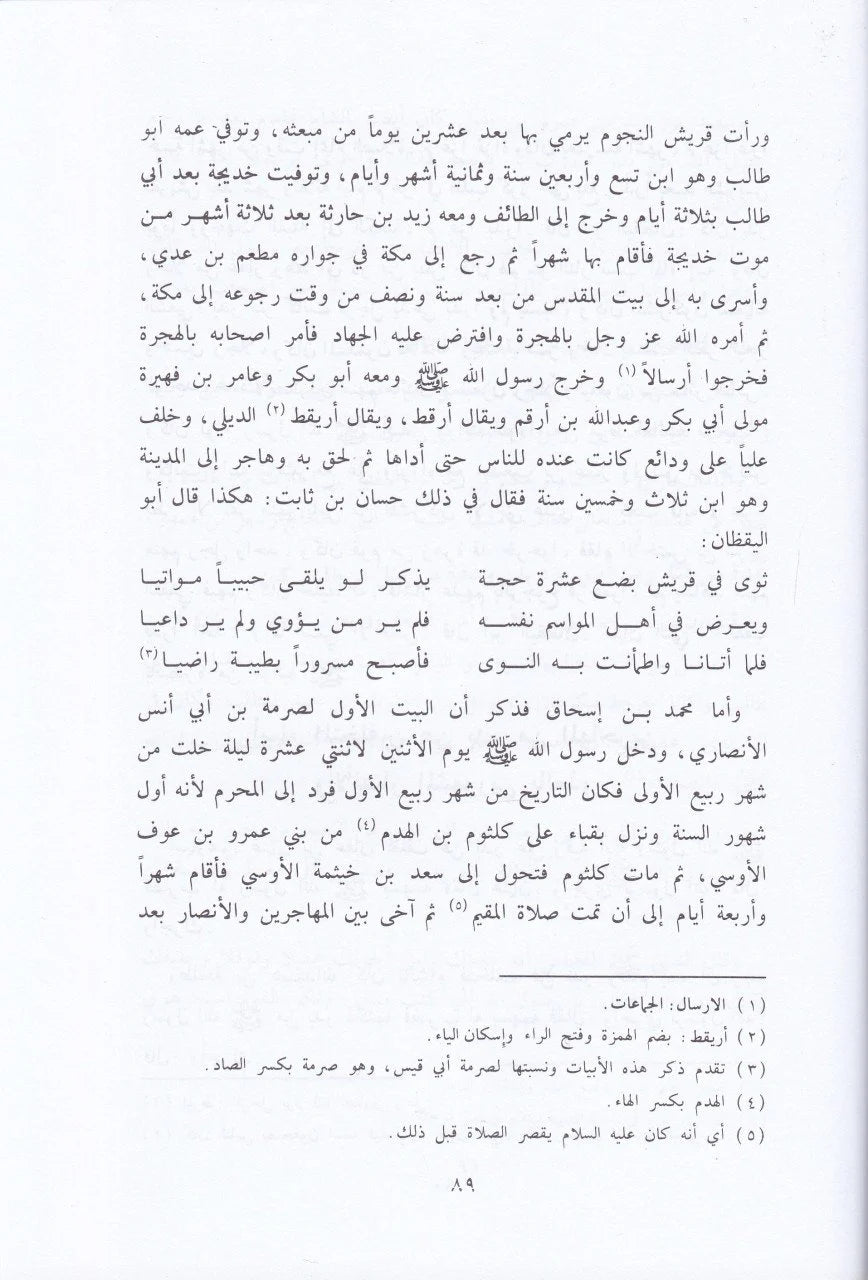 ورأت قريش النجوم يرمي بها بعد عشرين يوماً من مبعثه، وتوفي عمه أبو
طالب وهو ابن تسع وأربعين سنة وثمانية أشهر وأيام، وتوفيت خديجة بعد أبي
طالب بثلاثة أيام وخرج إلى الطائف ومعه زيد بن حارثة بعد ثلاثة أشهر من
موت خديجة فأقام بها شهراً ثم رجع إلى مكة في جواره مطعم بن عدي،
وأسرى به إلى بيت المقدس من بعد سنة ونصف من وقت رجوعه إلى مكة،
ثم أمره الله عز وجل بالهجرة وافترض عليه الجهاد فأمر اصحابه بالهجرة
فخرجوا أرسالاً (١) وخرج رسول الله ﷺ ومعه أبو بكر وعامر بن فهيرة
مولى أبي بكر وعبدالله بن أرقم ويقال أرقط، ويقال أريقط (٢) الديلي، وخلف
علياً على ودائع كانت عنده للناس حتى أداها ثم لحق به وهاجر إلى المدينة
وهو ابن ثلاث وخمسين سنة فقال في ذلك حسان بن ثابت: هكذا قال أبو
اليقظان:
ثوى في قريش بضع عشرة حجة يذكر لو يلقى حبيباً مواتيا
ويعرض في أهل المواسم نفسه فلم ير من يؤوي ولم ير داعيا
فلما أتانا واطمأنت به النوى فأصبح مسروراً بطيبة راضيا (٣)
وأما محمد بن إسحاق فذكر أن البيت الأول لصرمة بن أبي أنس
الأنصاري، ودخل رسول الله ﷺ يوم الأثنين لاثنتي عشرة ليلة خلت من
شهر ربيع الأولى فكان التاريخ من شهر ربيع الأول فرد إلى المحرم لأنه أول
شهور السنة ونزل بقباء على كلثوم بن الهدم (٤) من بني عمرو بن عوف
الأوسي، ثم مات كلثوم فتحول إلى سعد بن خيثمة الأوسي فأقام شهراً
وأربعة أيام إلى أن تمت صلاة المقيم (٥) ثم آخى بين المهاجرين والأنصار بعد
(١) الارسال: الجماعات.
(٢) أريقط: بضم الهمزة وفتح الراء وإسكان الياء.
(٣) تقدم ذكر هذه الأبيات ونسبتها لصرمة أبي قيس، وهو صرمة بكسر الصاد.
(٤) الهدم بكسر الهاء.
(٥) أي أنه كان عليه السلام يقصر الصلاة قبل ذلك.
٨٩